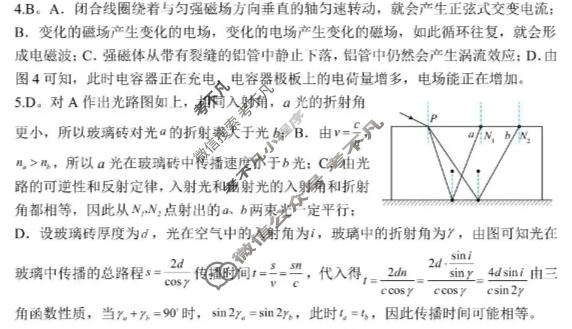 4.B。A.闭合线圈绕着与匀强磁场方向垂直的轴匀速转动，就会产生正弦式交变电流；
B.变化的磁场产生变化的电场，变化的电场产生变化的磁场，如此循环往复，就会形
成电磁波；C.强磁体从带有裂缝的铝管中静止下落，铝管中仍然会产生涡流效应；D.由
图4可知，此时电容器正在充电，电容器极板上的电荷量增多，电场能正在增加。
5.D。对A作出光路图如上，相同入射角，a光的折射角
更小，所以玻璃砖对光a的折射率大于光b；B.由v=c/n，
n_a>n_b，所以a光在玻璃砖中传播速度小于b光；C.由光
路的可逆性和反射定律，入射光和出射光的入射角和折射
角都相等，因此从N₁、N₂点射出的a、b两束光一定平行；
D.设玻璃砖厚度为d，光在空气中的入射角为i，玻璃中的折射角为γ，由图可知光在
玻璃中传播的总路程s=2d/cosγ 传播时间t=s/v=sn/c，代入得t=2dn/(c cosγ)=(2d·sin i/sinγ)/(c cosγ)=4d sin i/(c sin2γ) 由三
角函数性质，当γ_a+γ_b=90°时，sin2γ_a=sin2γ_b，此时t_a=t_b，因此传播时间可能相等。
P
a N₁ b N₂
考不凡
微信搜索小程序
考不凡
微信公众号 考不凡